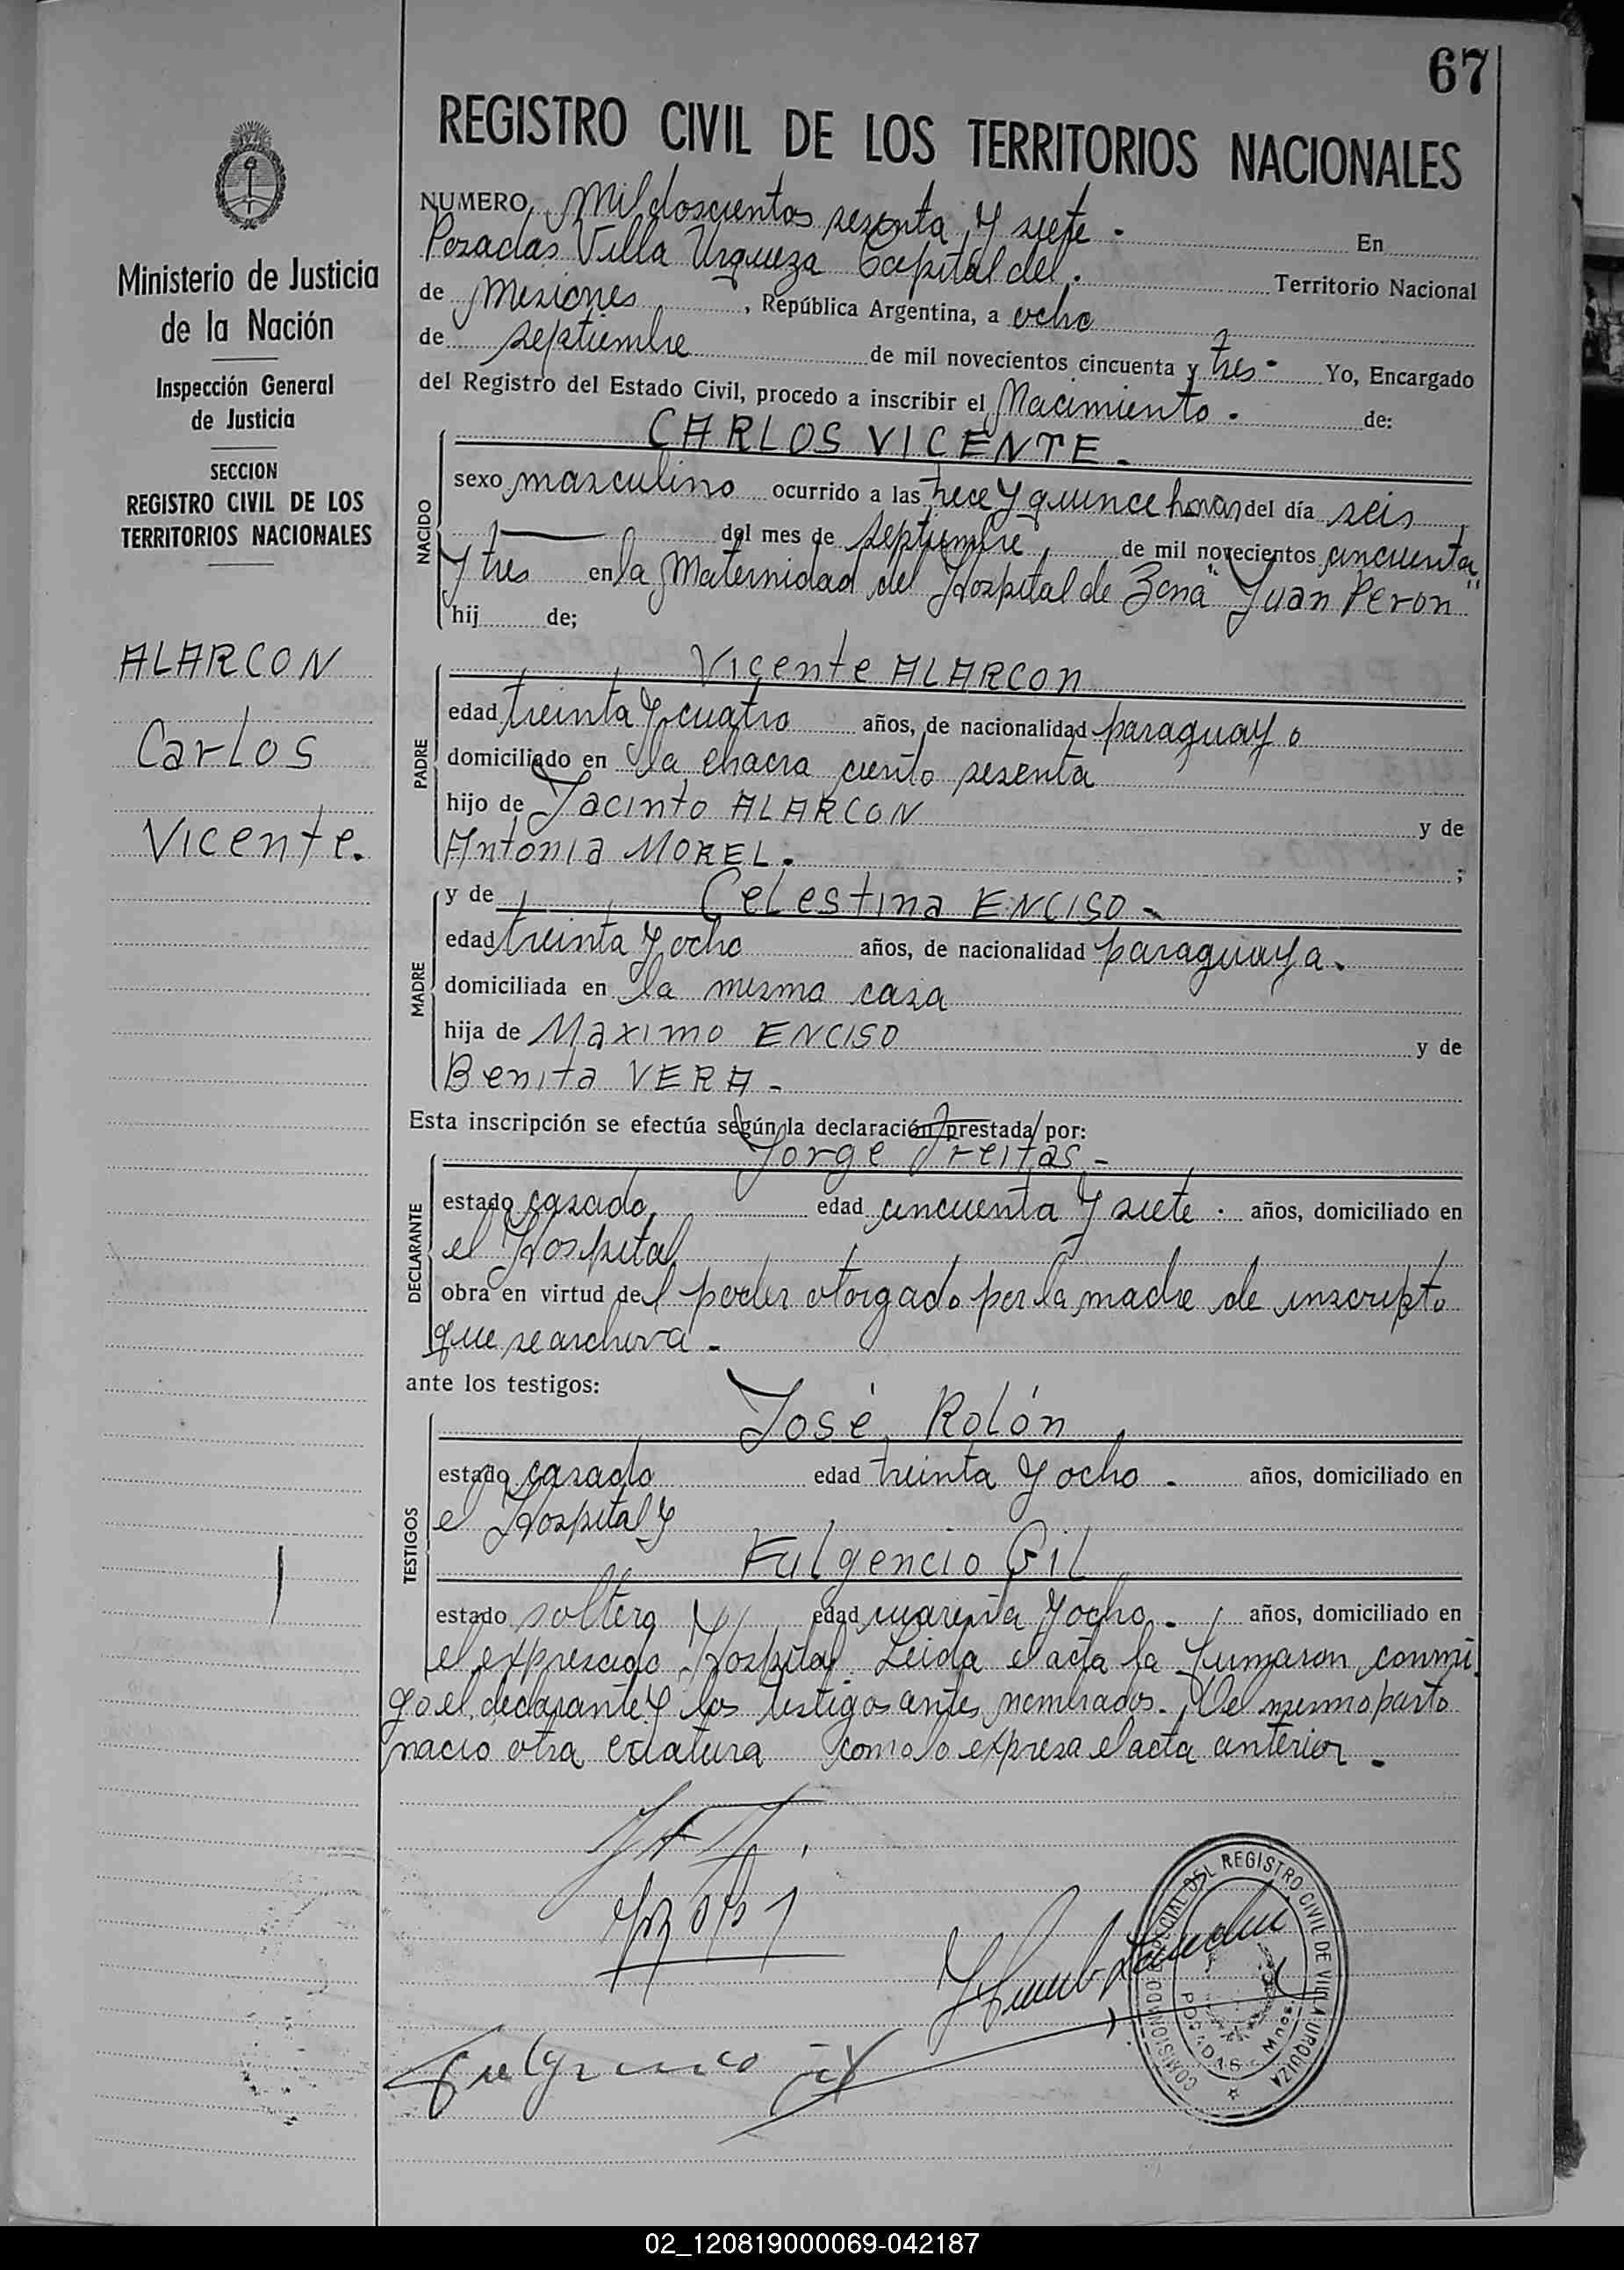 67
REGISTRO CIVIL DE LOS TERRITORIOS NACIONALES
Ministerio de Justicia
de la Nación
Inspección General
de Justicia
SECCION
REGISTRO CIVIL DE LOS
TERRITORIOS NACIONALES
ALARCON
Carlos
Vicente.
NUMERO Mil doscientos sesenta y siete. En
Posadas Villa Urqueza Capital del. Territorio Nacional
de Misiones, República Argentina, a ocho
de septiembre de mil novecientos cincuenta y tres - Yo, Encargado
del Registro del Estado Civil, procedo a inscribir el Nacimiento. de:
NACIDO
CARLOS VICENTE.
sexo masculino ocurrido a las trece y quince horas del día seis
del mes de septiembre, de mil novecientos cincuenta
y tres en la Maternidad del Hospital de Zona "Juan Peron"
hij de;
PADRE
Vicente ALARCON
edad treinta y cuatro años, de nacionalidad paraguayo
domiciliado en la chacra ciento sesenta
hijo de Jacinto ALARCON y de
Antonia MOREL. ;
MADRE
y de Celestina ENCISO -
edad treinta y ocho años, de nacionalidad paraguaya.
domiciliada en la misma casa
hija de Maximo ENCISO y de
Benita VERA -
Esta inscripción se efectúa según la declaración prestada por:
DECLARANTE
Jorge Freitas -
estado casado, edad cincuenta y siete. años, domiciliado en
el Hospital
obra en virtud del poder otorgado por la madre de inscripto
que se archiva -
ante los testigos:
TESTIGOS
José Rolón
estado casado edad treinta y ocho - años, domiciliado en
el Hospital y
Fulgencio Gil
estado soltero edad cuarenta y ocho. años, domiciliado en
el expresado Hospital. Leida el acta la firmaron conmi
go el declarante y los testigos antes nombrados. Del mismo parto
nacio otra criatura como lo expresa el acta anterior -
Fulgencio Gil
COMISIONADO POLICIAL DEL REGISTRO CIVIL DE VILLA URQUIZA
POSADAS - Mnes.
02_120819000069-042187